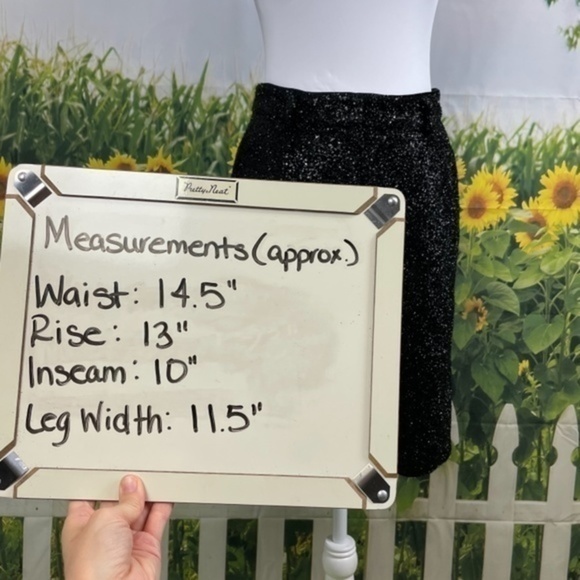 Pretty Neat
Measurements (approx.)
Waist: 14.5"
Rise: 13"
Inseam: 10"
Leg Width: 11.5"